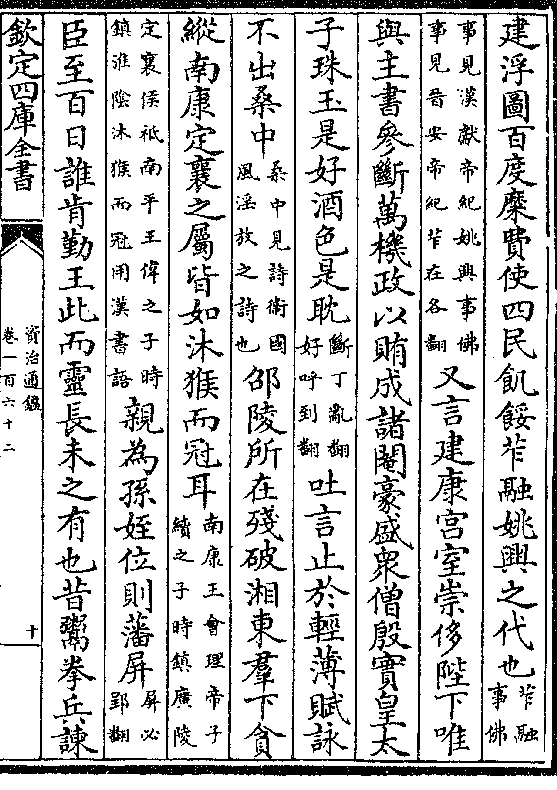 建浮圖百度糜費使四民飢餒笮融姚興之代也笮融事佛
事見漢獻帝紀姚興事佛事見晉安帝紀笮在各翻又言建康宮室崇侈陛下唯
與主書參斷萬機政以賄成諸閹豪盛衆僧殷實皇太
子珠玉是好酒色是耽斷丁亂翻好呼到翻吐言止於輕薄賦詠
不出桑中桑中見詩衛國風淫放之詩也邵陵所在殘破湘東羣下貪
縱南康定襄之屬皆如沐猴而冠耳南康王會理帝子續之子時鎮廣陵
定襄侯祗南平王偉之子時鎮淮陰沐猴而冠用漢書語親為孫姪位則藩屏屏必郢翻
臣至百日誰肯勤王此而靈長未之有也昔鬻拳兵諫
欽定四庫全書
資治通鑑
卷一百六十二
十